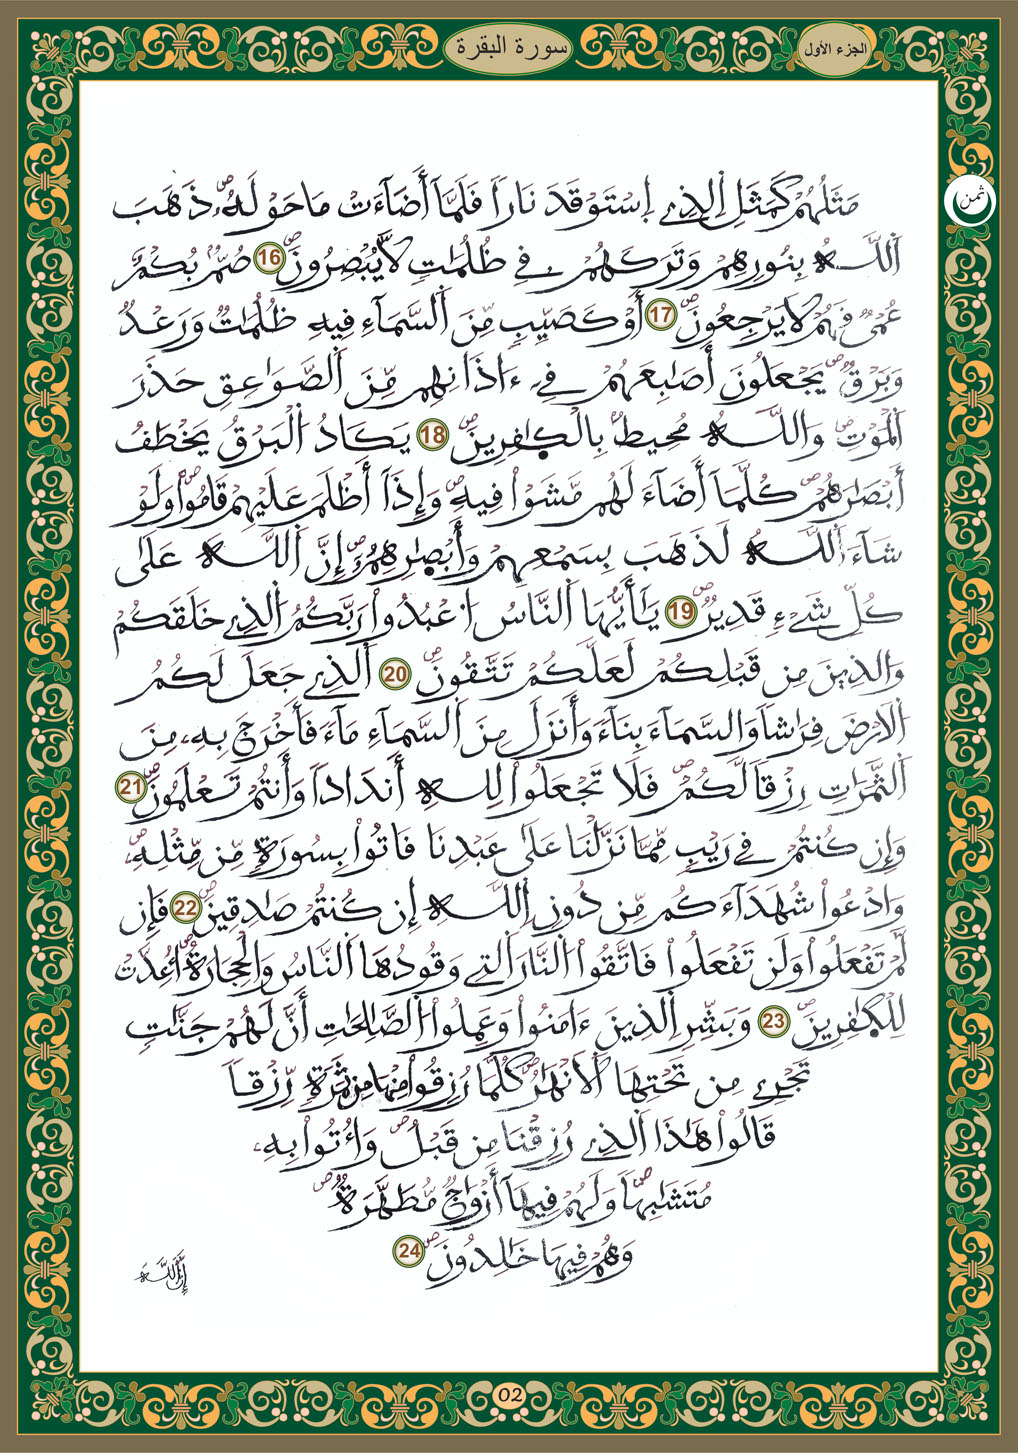 الجزء الأول
سورة البقرة
ثمن
مَثَلُهُمْ كَمَثَلِ اِ۬لذِے اِ۪سْتَوْقَدَ نَاراٗ فَلَمَّآ أَضَآءَتْ مَا حَوْلَهُۥ ذَهَبَ
اَ۬للَّهُ بِنُورِهِمْ وَتَرَكَهُمْ فِے ظُلُمَٰتٖ لَّا يُبْصِرُونَۖ 16 صُمُّۢ بُكْمٌ
عُمْيٞ فَهُمْ لَا يَرْجِعُونَۖ 17 أَوْ كَصَيِّبٖ مِّنَ اَ۬لسَّمَآءِ فِيهِ ظُلُمَٰتٞ وَرَعْدٞ
وَبَرْقٞۖ يَجْعَلُونَ أَصَٰبِعَهُمْ فِےٓ ءَاذَانِهِم مِّنَ اَ۬لصَّوَٰعِقِ حَذَرَ
اَ۬لْمَوْتِۖ وَاللَّهُ مُحِيطُۢ بِالْكٰ۪فِرِينَۖ 18 يَكَادُ اُ۬لْبَرْقُ يَخْطَفُ
أَبْصَٰرَهُمْۖ كُلَّمَآ أَضَآءَ لَهُم مَّشَوْاْ فِيهِۖ وَإِذَآ أَظْلَمَ عَلَيْهِمْ قَامُواْۖ وَلَوْ
شَآءَ اَ۬للَّهُ لَذَهَبَ بِسَمْعِهِمْ وَأَبْصٰ۪رِهِمُۥٓۖ إِنَّ اَ۬للَّهَ عَلَىٰ
كُلِّ شَےْءٖ قَدِيرٞۖ 19 يَٰٓأَيُّهَا اَ۬لنَّاسُ اُ۟عْبُدُواْ رَبَّكُمُ اُ۬لذِے خَلَقَكُمْ
وَالذِينَ مِن قَبْلِكُمْ لَعَلَّكُمْ تَتَّقُونَۖ 20 اَ۬لذِے جَعَلَ لَكُمُ
اُ۬لَارْضَ فِرَٰشاٗ وَالسَّمَآءَ بِنَآءٗ وَأَنزَلَ مِنَ اَ۬لسَّمَآءِ مَآءٗ فَأَخْرَجَ بِهِۦ مِنَ
اَ۬لثَّمَرَٰتِ رِزْقاٗ لَّكُمْۖ فَلَا تَجْعَلُواْ لِلهِ أَندَاداٗ وَأَنتُمْ تَعْلَمُونَۖ 21
وَإِن كُنتُمْ فِے رَيْبٖ مِّمَّا نَزَّلْنَا عَلَىٰ عَبْدِنَا فَاتُواْ بِسُورَةٖ مِّن مِّثْلِهِۦۖ
وَادْعُواْ شُهَدَآءَكُم مِّن دُونِ اِ۬للَّهِ إِن كُنتُمْ صَٰدِقِينَۖ 22 فَإِن
لَّمْ تَفْعَلُواْ وَلَن تَفْعَلُواْ فَاتَّقُواْ اُ۬لنَّارَ اَ۬لتِے وَقُودُهَا اَ۬لنَّاسُ وَالْحِجَارَةُۖ أُعِدَّتْ
لِلْكٰ۪فِرِينَۖ 23 وَبَشِّرِ اِ۬لذِينَ ءَامَنُواْ وَعَمِلُواْ اُ۬لصَّٰلِحَٰتِ أَنَّ لَهُمْ جَنَّٰتٖ
تَجْرِے مِن تَحْتِهَا اَ۬لَانْهَٰرُۖ كُلَّمَا رُزِقُواْ مِنْهَا مِن ثَمَرَةٖ رِّزْقاٗ
قَالُواْ هَٰذَا اَ۬لذِے رُزِقْنَا مِن قَبْلُۖ وَأُتُواْ بِهِۦ
مُتَشَٰبِهاٗۖ وَلَهُمْ فِيهَآ أَزْوَٰجٞ مُّطَهَّرَةٞۖ
وَهُمْ فِيهَا خَٰلِدُونَۖ 24
إِنَّ اَ۬للَّهَ
02